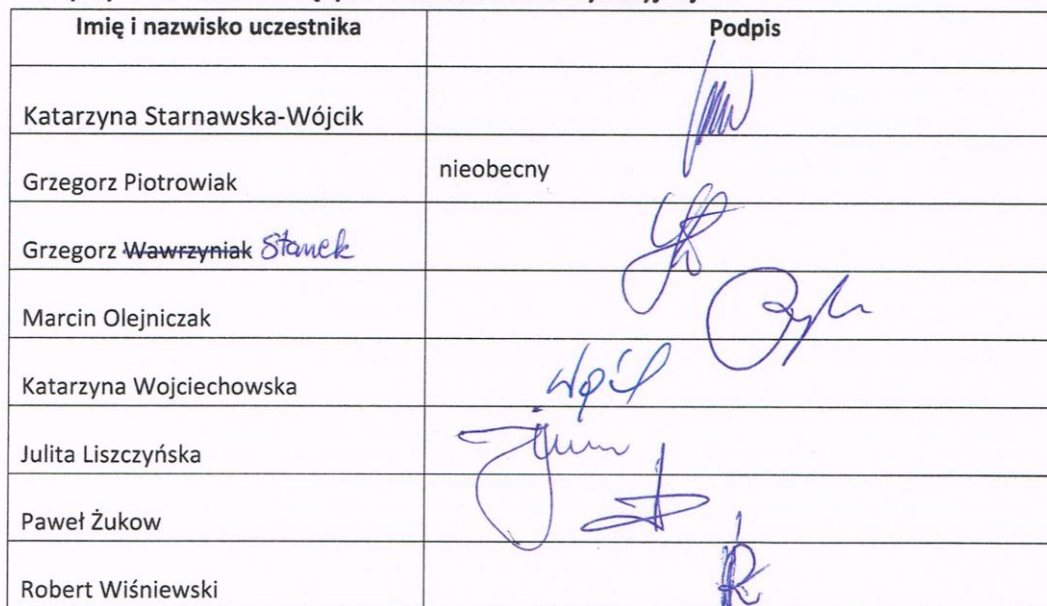 Imię i nazwisko uczestnika Podpis
Katarzyna Starnawska-Wójcik
Grzegorz Piotrowiak nieobecny
Grzegorz Wawrzyniak Stanek
Marcin Olejniczak
Katarzyna Wojciechowska
Julita Liszczyńska
Paweł Żukow
Robert Wiśniewski